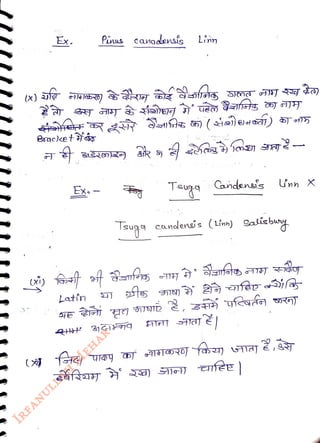 Ex. Pinus canadensis Linn
(x) यदि नामकरण के दौरान कोई वैज्ञानिक गलत नाम रख देता
है तो उस नाम के संशोधन में पहले वैज्ञानिक का नाम
कर दूसरे वैज्ञानिक का (संशोधनकर्ता) का नाम
Bracket में
न ही अंडरलाइन और न ही इटैलिक में लिखा जाता है —
Ex. - Tsuga Candensis Linn X
Tsuga candensis (Linn) Salisbury
(xi) किसी भी वैज्ञानिक नाम में वैज्ञानिक नाम सदैव
Latin या ग्रीक भाषा में होने चाहिए क्योंकि
यह दोनों मृत भाषाएँ है, इसमें परिवर्तन करना
असम्भव माना जाता है|
जिस पादप का नामकरण किया जाता है, उसे
हर्बेरियम में रखा जाना चाहिए|